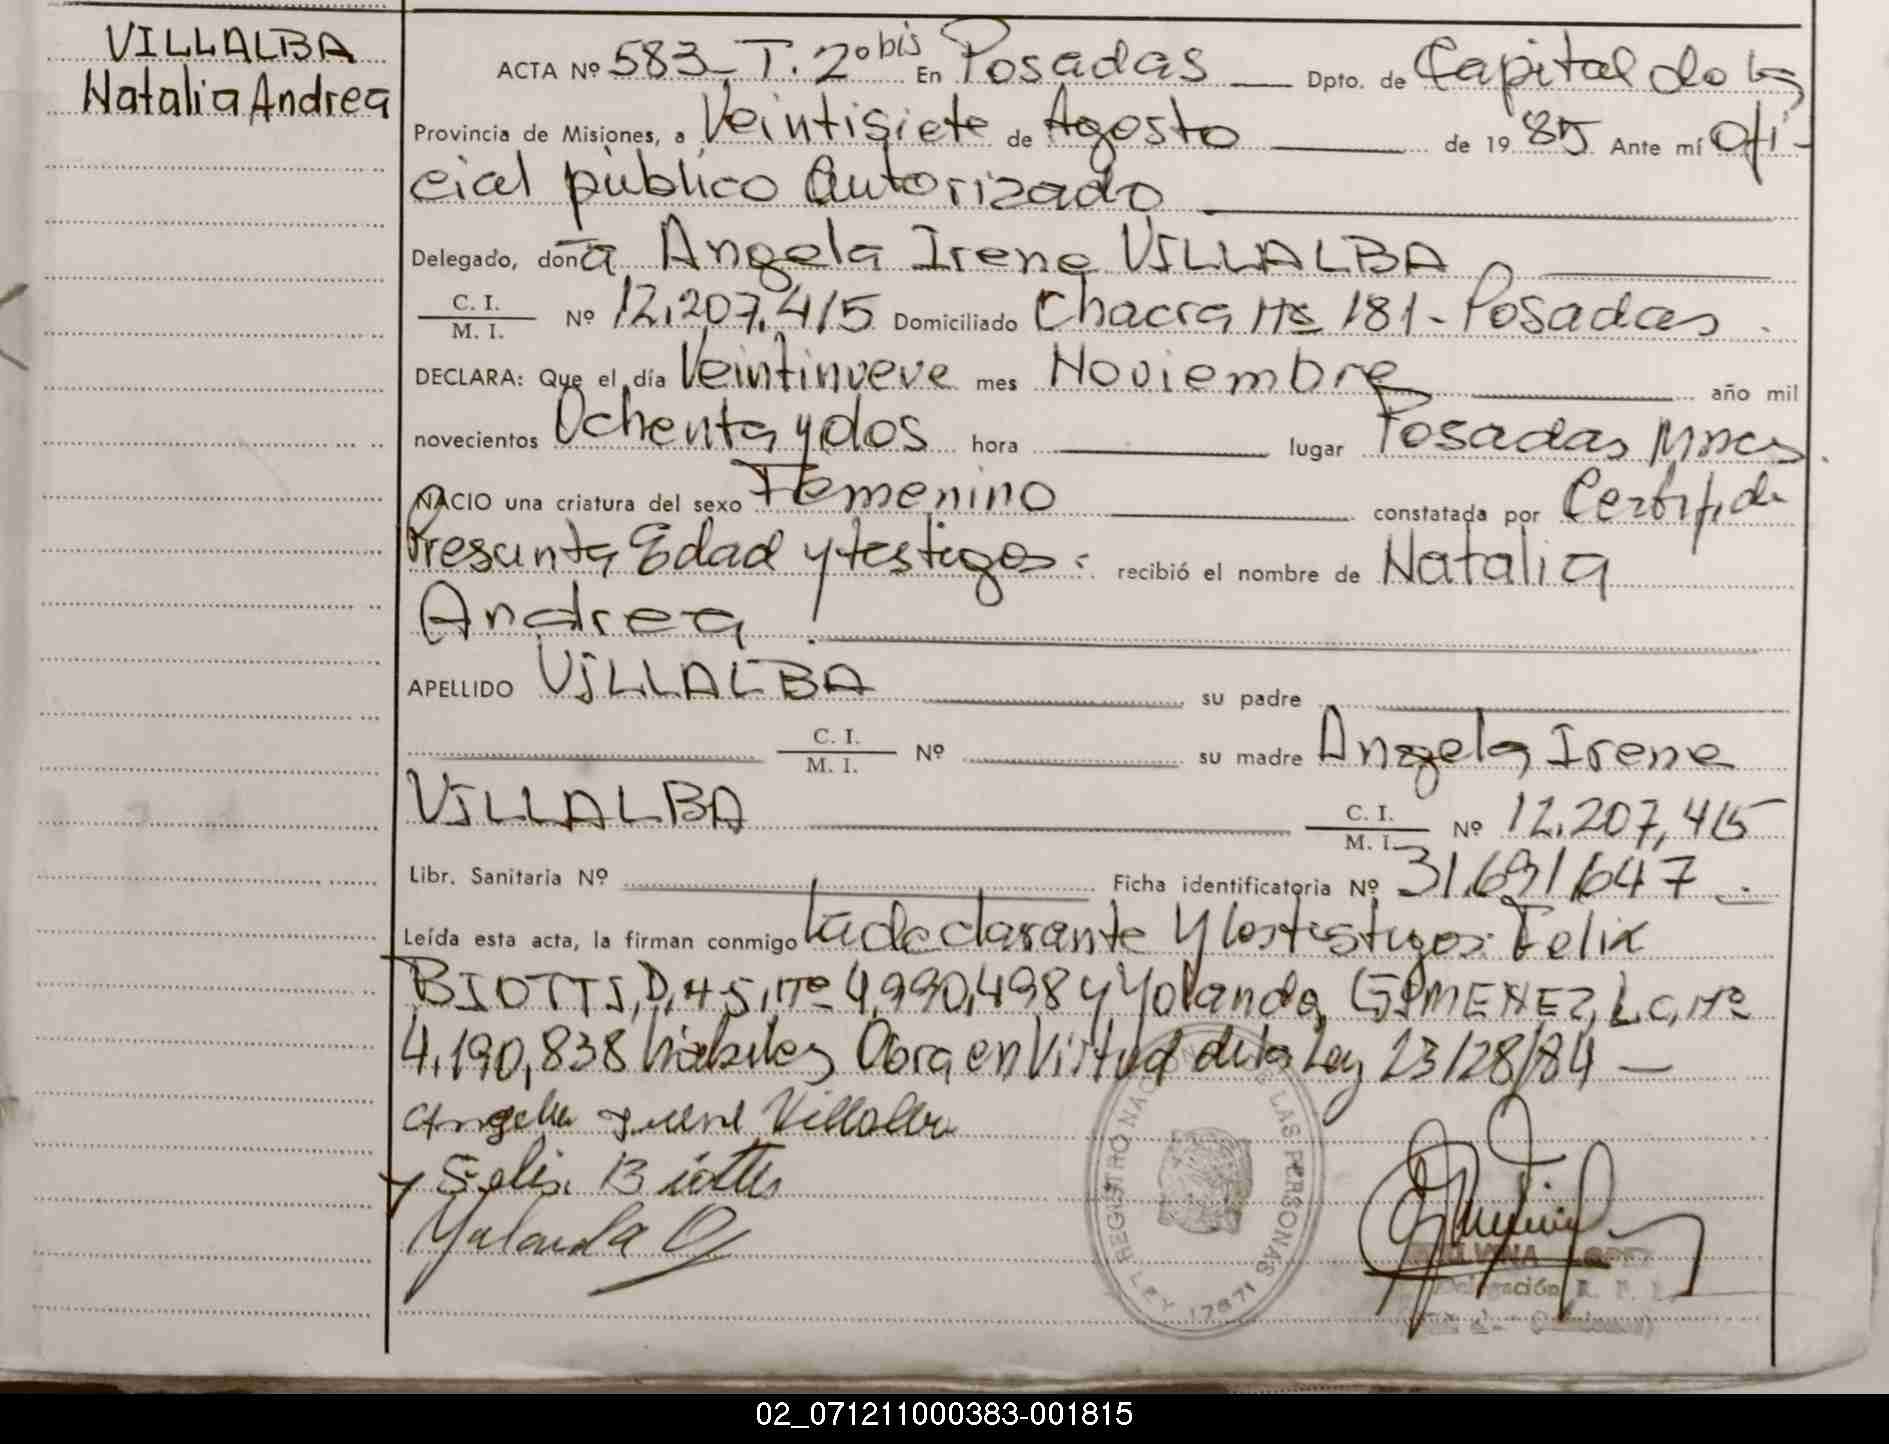 VILLALBA
Natalia Andrea
ACTA Nº 583 T. 2º bis En Posadas Dpto. de Capital de la
Provincia de Misiones, a Veintisiete de Agosto de 1985 Ante mí Ofi-
cial público Autorizado
Delegado, donã Angela Irene VILLALBA
C. I.
M. I. Nº 12.207.415 Domiciliado Chacra Nº 181 - Posadas.
DECLARA: Que el día Veintinueve mes Noviembre año mil
novecientos Ochenta y dos hora lugar Posadas Mnes.
NACIO una criatura del sexo Femenino constatada por Certif. de
Presunta Edad y testigos: recibió el nombre de Natalia
Andrea.
APELLIDO VILLALBA su padre
C. I.
M. I. Nº su madre Angela Irene
VILLALBA C. I.
M. I. Nº 12.207.415
Libr. Sanitaria Nº Ficha identificatoria Nº 31.691.647
Leída esta acta, la firman conmigo la declarante y los testigos: Felix
BIOTTI, D.N.I. Nº 4.990.498 y Yolanda GIMENEZ, L.C. Nº
4.190.838 hábiles Obra en Virtud de la Ley 23128/84 —
Angela Irene Villalba
Felix Biotti
Yolanda G
REGISTRO NACIONAL DE LAS PERSONAS
LEY 17671
Delegación R. P.
02_071211000383-001815